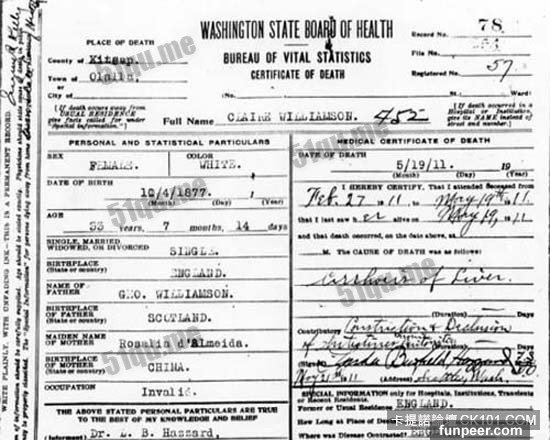 WASHINGTON STATE BOARD OF HEALTH
BUREAU OF VITAL STATISTICS
CERTIFICATE OF DEATH
PLACE OF DEATH
County of Kitsap.
Town of Olalla,
City of
Record No. 78
File No.
Registered No. 57
No. St.; Ward
[If death occurs away from USUAL RESIDENCE give facts called for under "Special Information."]
[If death occurred in a Hospital or Institution, give its NAME instead of street and number.]
Full Name CLAIRE WILLIAMSON. 452
WRITE PLAINLY, WITH UNFADING INK—THIS IS A PERMANENT RECORD.
PERSONAL AND STATISTICAL PARTICULARS
SEX FEMALE. COLOR WHITE.
DATE OF BIRTH 10/4/1877.
(Month) (Day) (Year)
AGE 33 years, 7 months, 14 days
SINGLE, MARRIED, WIDOWED, OR DIVORCED SINGLE.
BIRTHPLACE (State or country) ENGLAND.
NAME OF FATHER GEO. WILLIAMSON.
BIRTHPLACE OF FATHER (State or country) SCOTLAND.
MAIDEN NAME OF MOTHER Rosalia d'Almeida.
BIRTHPLACE OF MOTHER (State or country) CHINA.
OCCUPATION Invalid.
THE ABOVE STATED PERSONAL PARTICULARS ARE TRUE TO THE BEST OF MY KNOWLEDGE AND BELIEF
Informant Dr. L. B. Hazzard,
MEDICAL CERTIFICATE OF DEATH
DATE OF DEATH 5/19/11. 19
(Month) (Day) (Year)
I HEREBY CERTIFY, That I attended deceased
from Feb. 27 1911 to May 19th 1911
that I last saw her alive on May 19, 1911
and that death occurred, on the date stated above, at M.
The CAUSE OF DEATH was as follows:
Cirrhosis of Liver.
(Duration) Days
Contributory
(Duration) Days
(Signed) Linda Burfield Hazzard
May 21 1911 (Address) Seattle, Wash.
SPECIAL INFORMATION only for Hospitals, Institutions, Transients, or Recent Residents.
Former or Usual Residence ENGLAND.
How Long at Place of Death
Where was Disease Contracted
51qu.me
51qu.me
51qu.me
51qu.me
51qu.me
卡提諾論壇 CK101.COM
funpeer.com